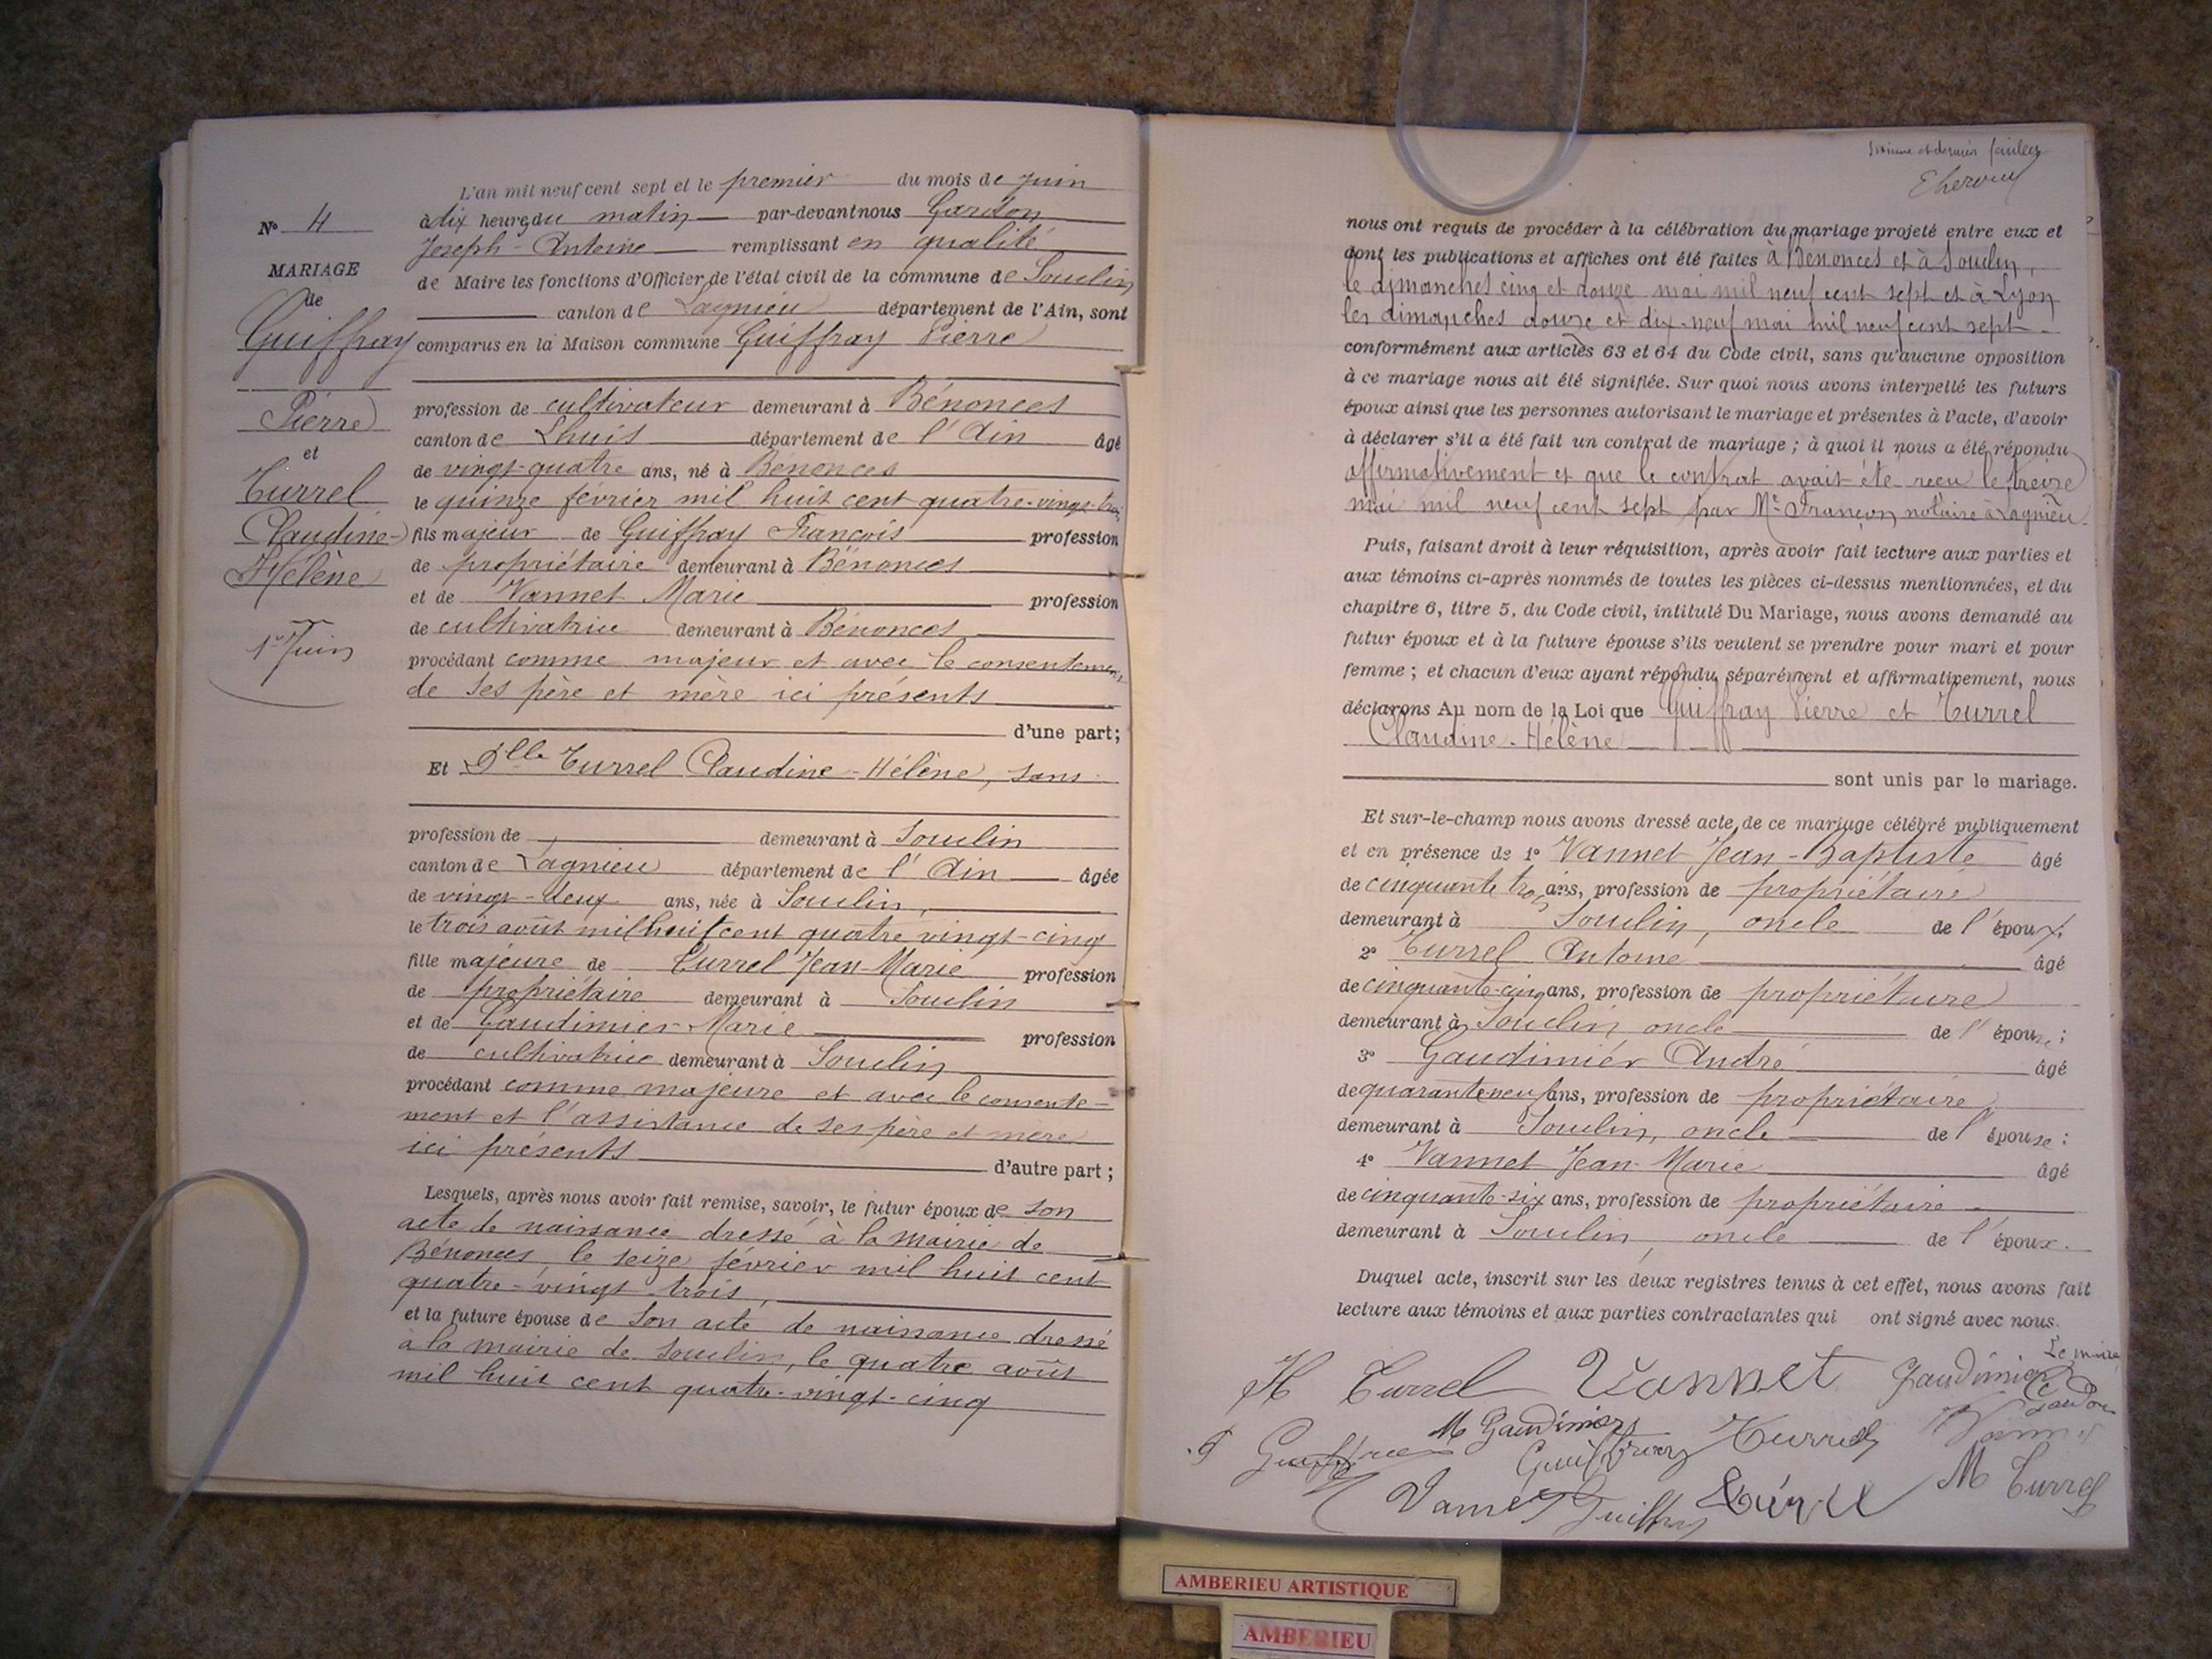 L'an mil neuf cent sept et le premier du mois de juin
à dix heures du matin par-devant nous Gardon
Joseph-Antoine remplissant en qualité
de Maire les fonctions d'Officier de l'état civil de la commune de Souclin
canton de Lagnieu département de l'Ain, sont
comparus en la Maison commune Guiffray Pierre
profession de cultivateur demeurant à Bénonces
canton de Lhuis département de l'Ain âgé
de vingt-quatre ans, né à Bénonces
le quinze février mil huit cent quatre-vingt-trois
fils majeur de Guiffray François profession
de propriétaire demeurant à Bénonces
et de Vannet Marie profession
de cultivatrice demeurant à Bénonces
procédant comme majeur et avec le consentement
de ses père et mère ici présents
d'une part;
Et Dlle Turrel Claudine-Hélène, sans
profession de demeurant à Souclin
canton de Lagnieu département de l'Ain âgée
de vingt-deux ans, née à Souclin,
le trois août mil huit cent quatre vingt-cinq
fille majeure de Turrel Jean-Marie profession
de propriétaire demeurant à Souclin
et de Gaudimier Marie profession
de cultivatrice demeurant à Souclin
procédant comme majeure et avec le consente-
ment et l'assistance de ses père et mère
ici présents d'autre part;
Lesquels, après nous avoir fait remise, savoir, le futur époux de son
acte de naissance dressé à la mairie de
Bénonces, le seize février mil huit cent
quatre-vingt-trois,
et la future épouse de son acte de naissance dressé
à la mairie de Souclin, le quatre août
mil huit cent quatre-vingt-cinq
No 4
MARIAGE
de
Guiffray
Pierre
et
Turrel
Claudine-
Hélène
1er Juin
et dernier feuillet
nous ont requis de procéder à la célébration du mariage projeté entre eux et
dont les publications et affiches ont été faites à Bénonces et à Souclin,
le dimanches cinq et douze mai mil neuf cent sept et à Lyon
les dimanches douze et dix-neuf mai mil neuf cent sept
conformément aux articles 63 et 64 du Code civil, sans qu'aucune opposition
à ce mariage nous ait été signifiée. Sur quoi nous avons interpellé les futurs
époux ainsi que les personnes autorisant le mariage et présentes à l'acte, d'avoir
à déclarer s'il a été fait un contrat de mariage; à quoi il nous a été répondu
affirmativement et que le contrat avait été reçu le treize
mai mil neuf cent sept par Me Françon notaire à Lagnieu.
Puis, faisant droit à leur réquisition, après avoir fait lecture aux parties et
aux témoins ci-après nommés de toutes les pièces ci-dessus mentionnées, et du
chapitre 6, titre 5, du Code civil, intitulé Du Mariage, nous avons demandé au
futur époux et à la future épouse s'ils veulent se prendre pour mari et pour
femme; et chacun d'eux ayant répondu séparément et affirmativement, nous
déclarons Au nom de la Loi que Guiffray Pierre et Turrel
Claudine-Hélène
sont unis par le mariage.
Et sur-le-champ nous avons dressé acte de ce mariage célébré publiquement
et en présence de 1o Vannet Jean-Baptiste âgé
de cinquante trois ans, profession de propriétaire
demeurant à Souclin, oncle de l'époux;
2o Turrel Antoine âgé
de cinquante-cinq ans, profession de propriétaire
demeurant à Souclin oncle de l'épouse;
3o Gaudimier André âgé
de quarante-neuf ans, profession de propriétaire
demeurant à Souclin, oncle de l'épouse;
4o Vannet Jean-Marie âgé
de cinquante-six ans, profession de propriétaire
demeurant à Souclin, oncle de l'époux.
Duquel acte, inscrit sur les deux registres tenus à cet effet, nous avons fait
lecture aux témoins et aux parties contractantes qui ont signé avec nous.
Le maire
H Turrel Vannet Gaudimier
M Gaudimier
Turrel
Vannet Guiffray M Turrel
AMBERIEU ARTISTIQUE
AMBERIEU